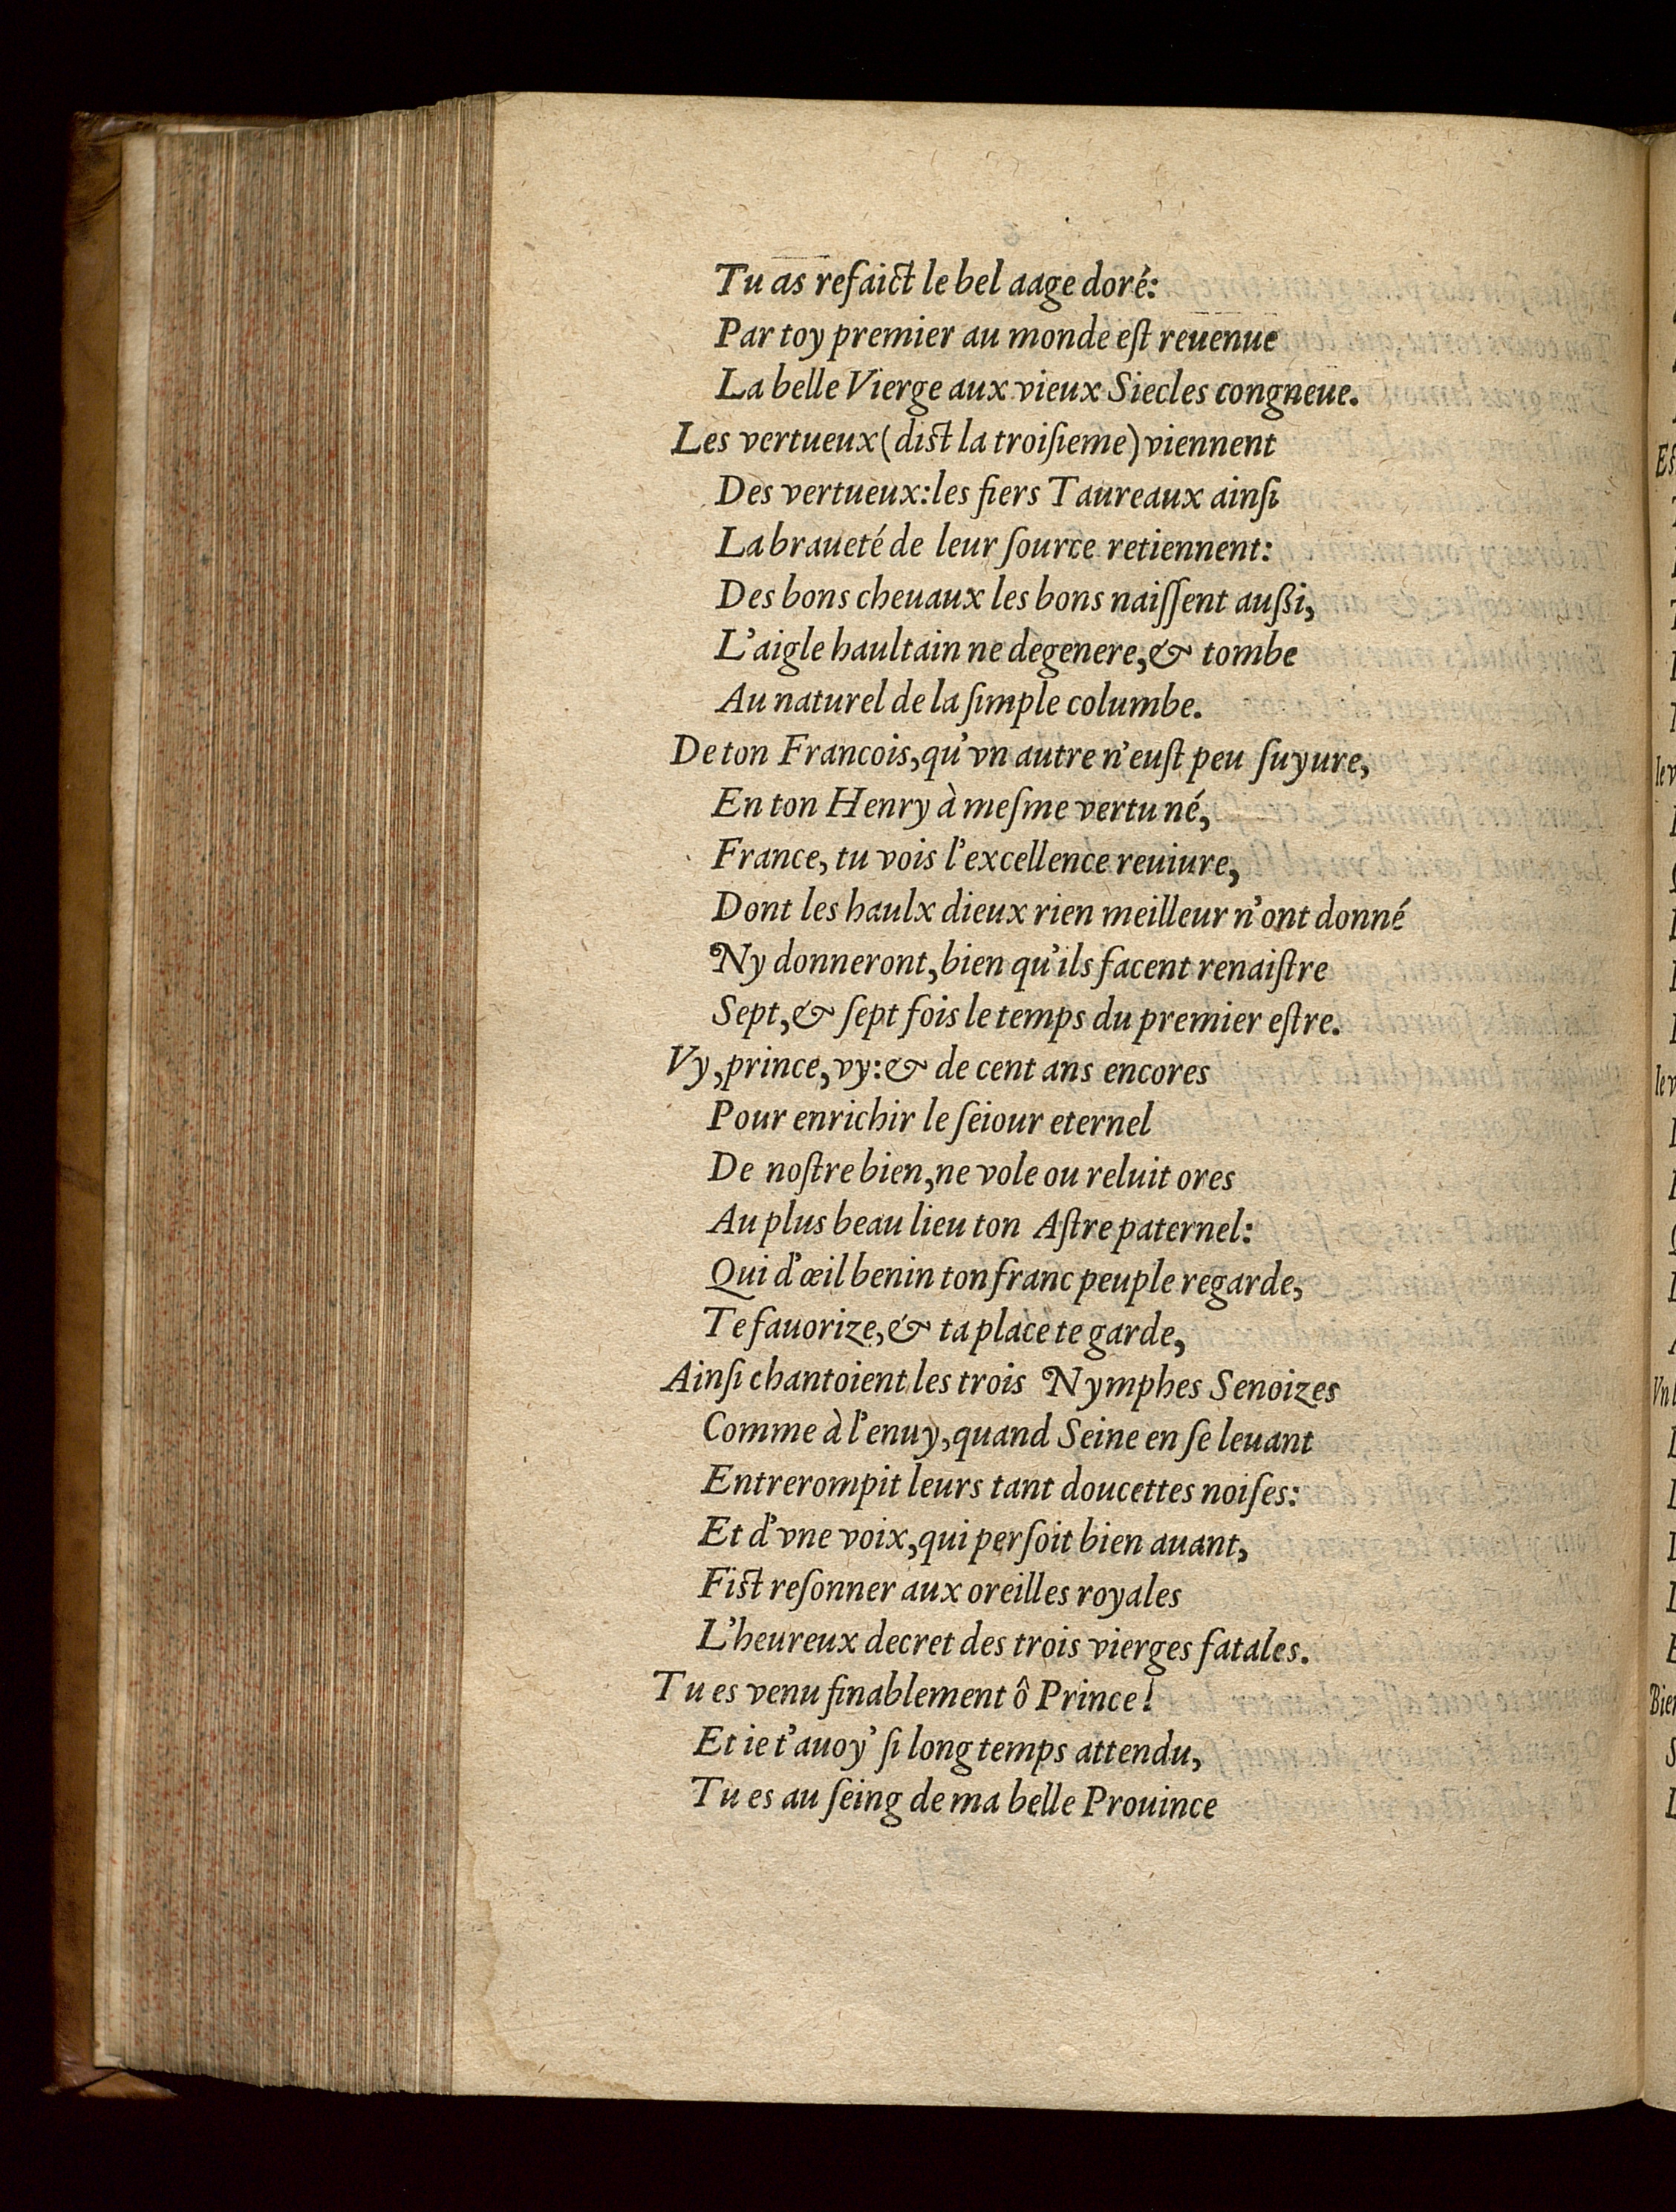 Tu as refaict le bel aage doré:
Par toy premier au monde eſt reuenue
La belle Vierge aux vieux Siecles congneue.
Les vertueux (diſt la troiſieme) viennent
Des vertueux: les fiers Taureaux ainſi
La braueté de leur ſource retiennent:
Des bons cheuaux les bons naiſſent außi,
L'aigle haultain ne degenere, & tombe
Au naturel de la ſimple columbe.
De ton Francois, qu'vn autre n'euſt peu ſuyure,
En ton Henry à meſme vertu né,
France, tu vois l'excellence reuiure,
Dont les haulx dieux rien meilleur n'ont donné
Ny donneront, bien qu'ils facent renaiſtre
Sept, & ſept fois le temps du premier eſtre.
Vy, prince, vy: & de cent ans encores
Pour enrichir le ſeiour eternel
De noſtre bien, ne vole ou reluit ores
Au plus beau lieu ton Aſtre paternel:
Qui d'œil benin ton franc peuple regarde,
Te fauorize, & ta place te garde,
Ainſi chantoient les trois Nymphes Senoizes
Comme à l'enuy, quand Seine en ſe leuant
Entrerompit leurs tant doucettes noiſes:
Et d'vne voix, qui perſoit bien auant,
Fiſt reſonner aux oreilles royales
L'heureux decret des trois vierges fatales.
Tu es venu finablement ô Prince!
Et ie t'auoy' ſi long temps attendu,
Tu es au ſeing de ma belle Prouince